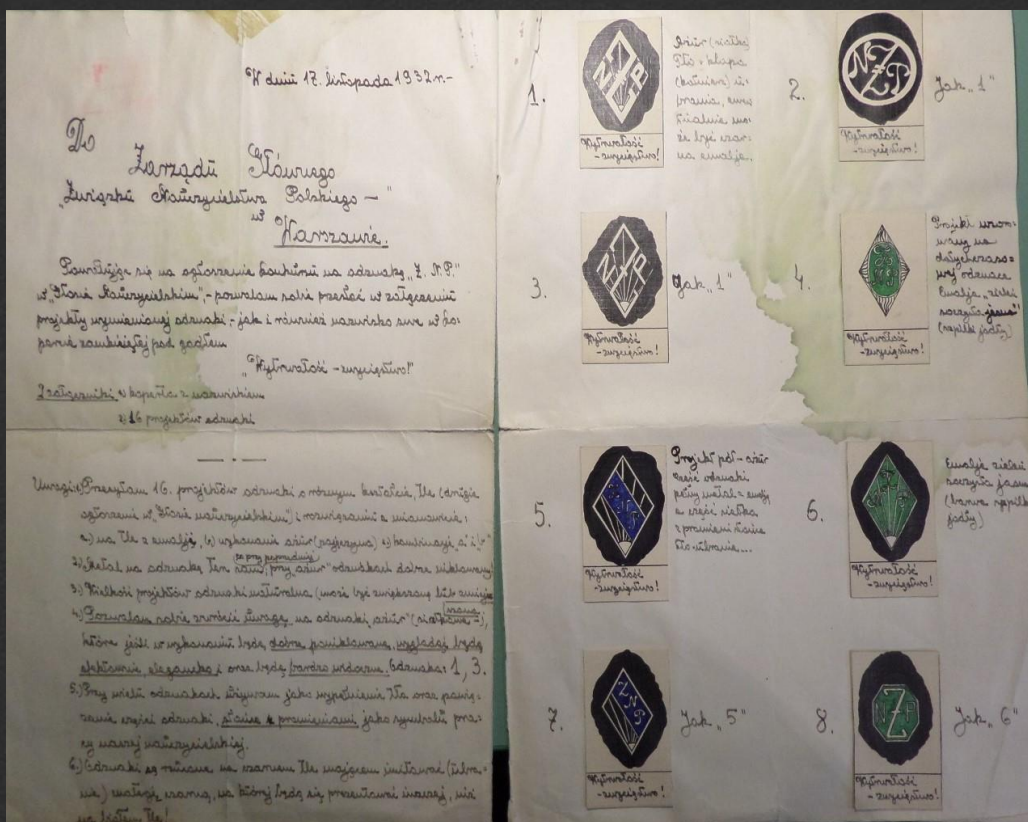 W dniu 17. listopada 1932 r.-
Do
Zarządu Głównego
„Związku Nauczycielstwa Polskiego —"
w
Warszawie.
Powołując się na ogłoszenie konkursu na odznakę „Z. N. P."
w „Głosie Nauczycielskim", - pozwalam sobie przesłać w załączeniu
projekty wymienionej odznaki, - jak i również nazwisko swe w ko-
percie zamkniętej pod godłem
„Wytrwałość - zwycięstwo!"
2 załączniki koperta z nazwiskiem
2) 16 projektów odznaki
Uwagi: 1) Przesyłam 16. projektów odznaki o różnym kształcie, tle
ogłoszenie w „Głosie nauczycielskim") i rozwiązaniu a mianowicie:
a.) na tle z emalji,
2.) Metal na odznakę
3.) Wielkość projektów odznaki naturalna (może być zwiększona lub zmniej-
szona)
4.) Pozwalam sobie zwrócić uwagę na odznaki „ażur"
które jeśli w wykonaniu będą dobrze poniklowane, wyglądać będą
elegancko i oraz będą bardzo widoczne. Odznaka: 1, 3.
5.) Przy wielu odznakach używam jako wypełnienie tła oraz powią-
zanie części odznaki, słońce z promieniami jako symbol pra-
cy naszej nauczycielskiej.
6.) Odznaki są na czarnem tle mającem imitować (ubra-
nie) materję czarną, na której będą się prezentować inaczej, niż
na białem tle!
1.
NZP
Wytrwałość
- zwycięstwo!
Ażur (siatka)
Tło = klapa
(kołnierz) u-
brania, ewen-
tualnie mo-
że być czar-
na emalja.
2.
NZP
Wytrwałość
- zwycięstwo!
Jak „1"
3.
NZP
Wytrwałość
- zwycięstwo!
Jak „1"
4.
Wytrwałość
- zwycięstwo!
Projekt wzoro-
wany na
dotychczaso-
wej odznace
Emalja „zieleń
soczysta jasna"
(szpilki jodły)
5.
Wytrwałość
- zwycięstwo!
Projekt pół-ażur
część odznaki
pełny metal = emalja
a część siatka
z promieni słońca
tło-ubranie...
6.
Wytrwałość
- zwycięstwo!
Emalja zieleń
soczysta jasna
(barwa szpilki
jodły)
7.
ZNP
Wytrwałość
- zwycięstwo!
Jak „5"
8.
NZP
Wytrwałość
- zwycięstwo!
Jak „6"